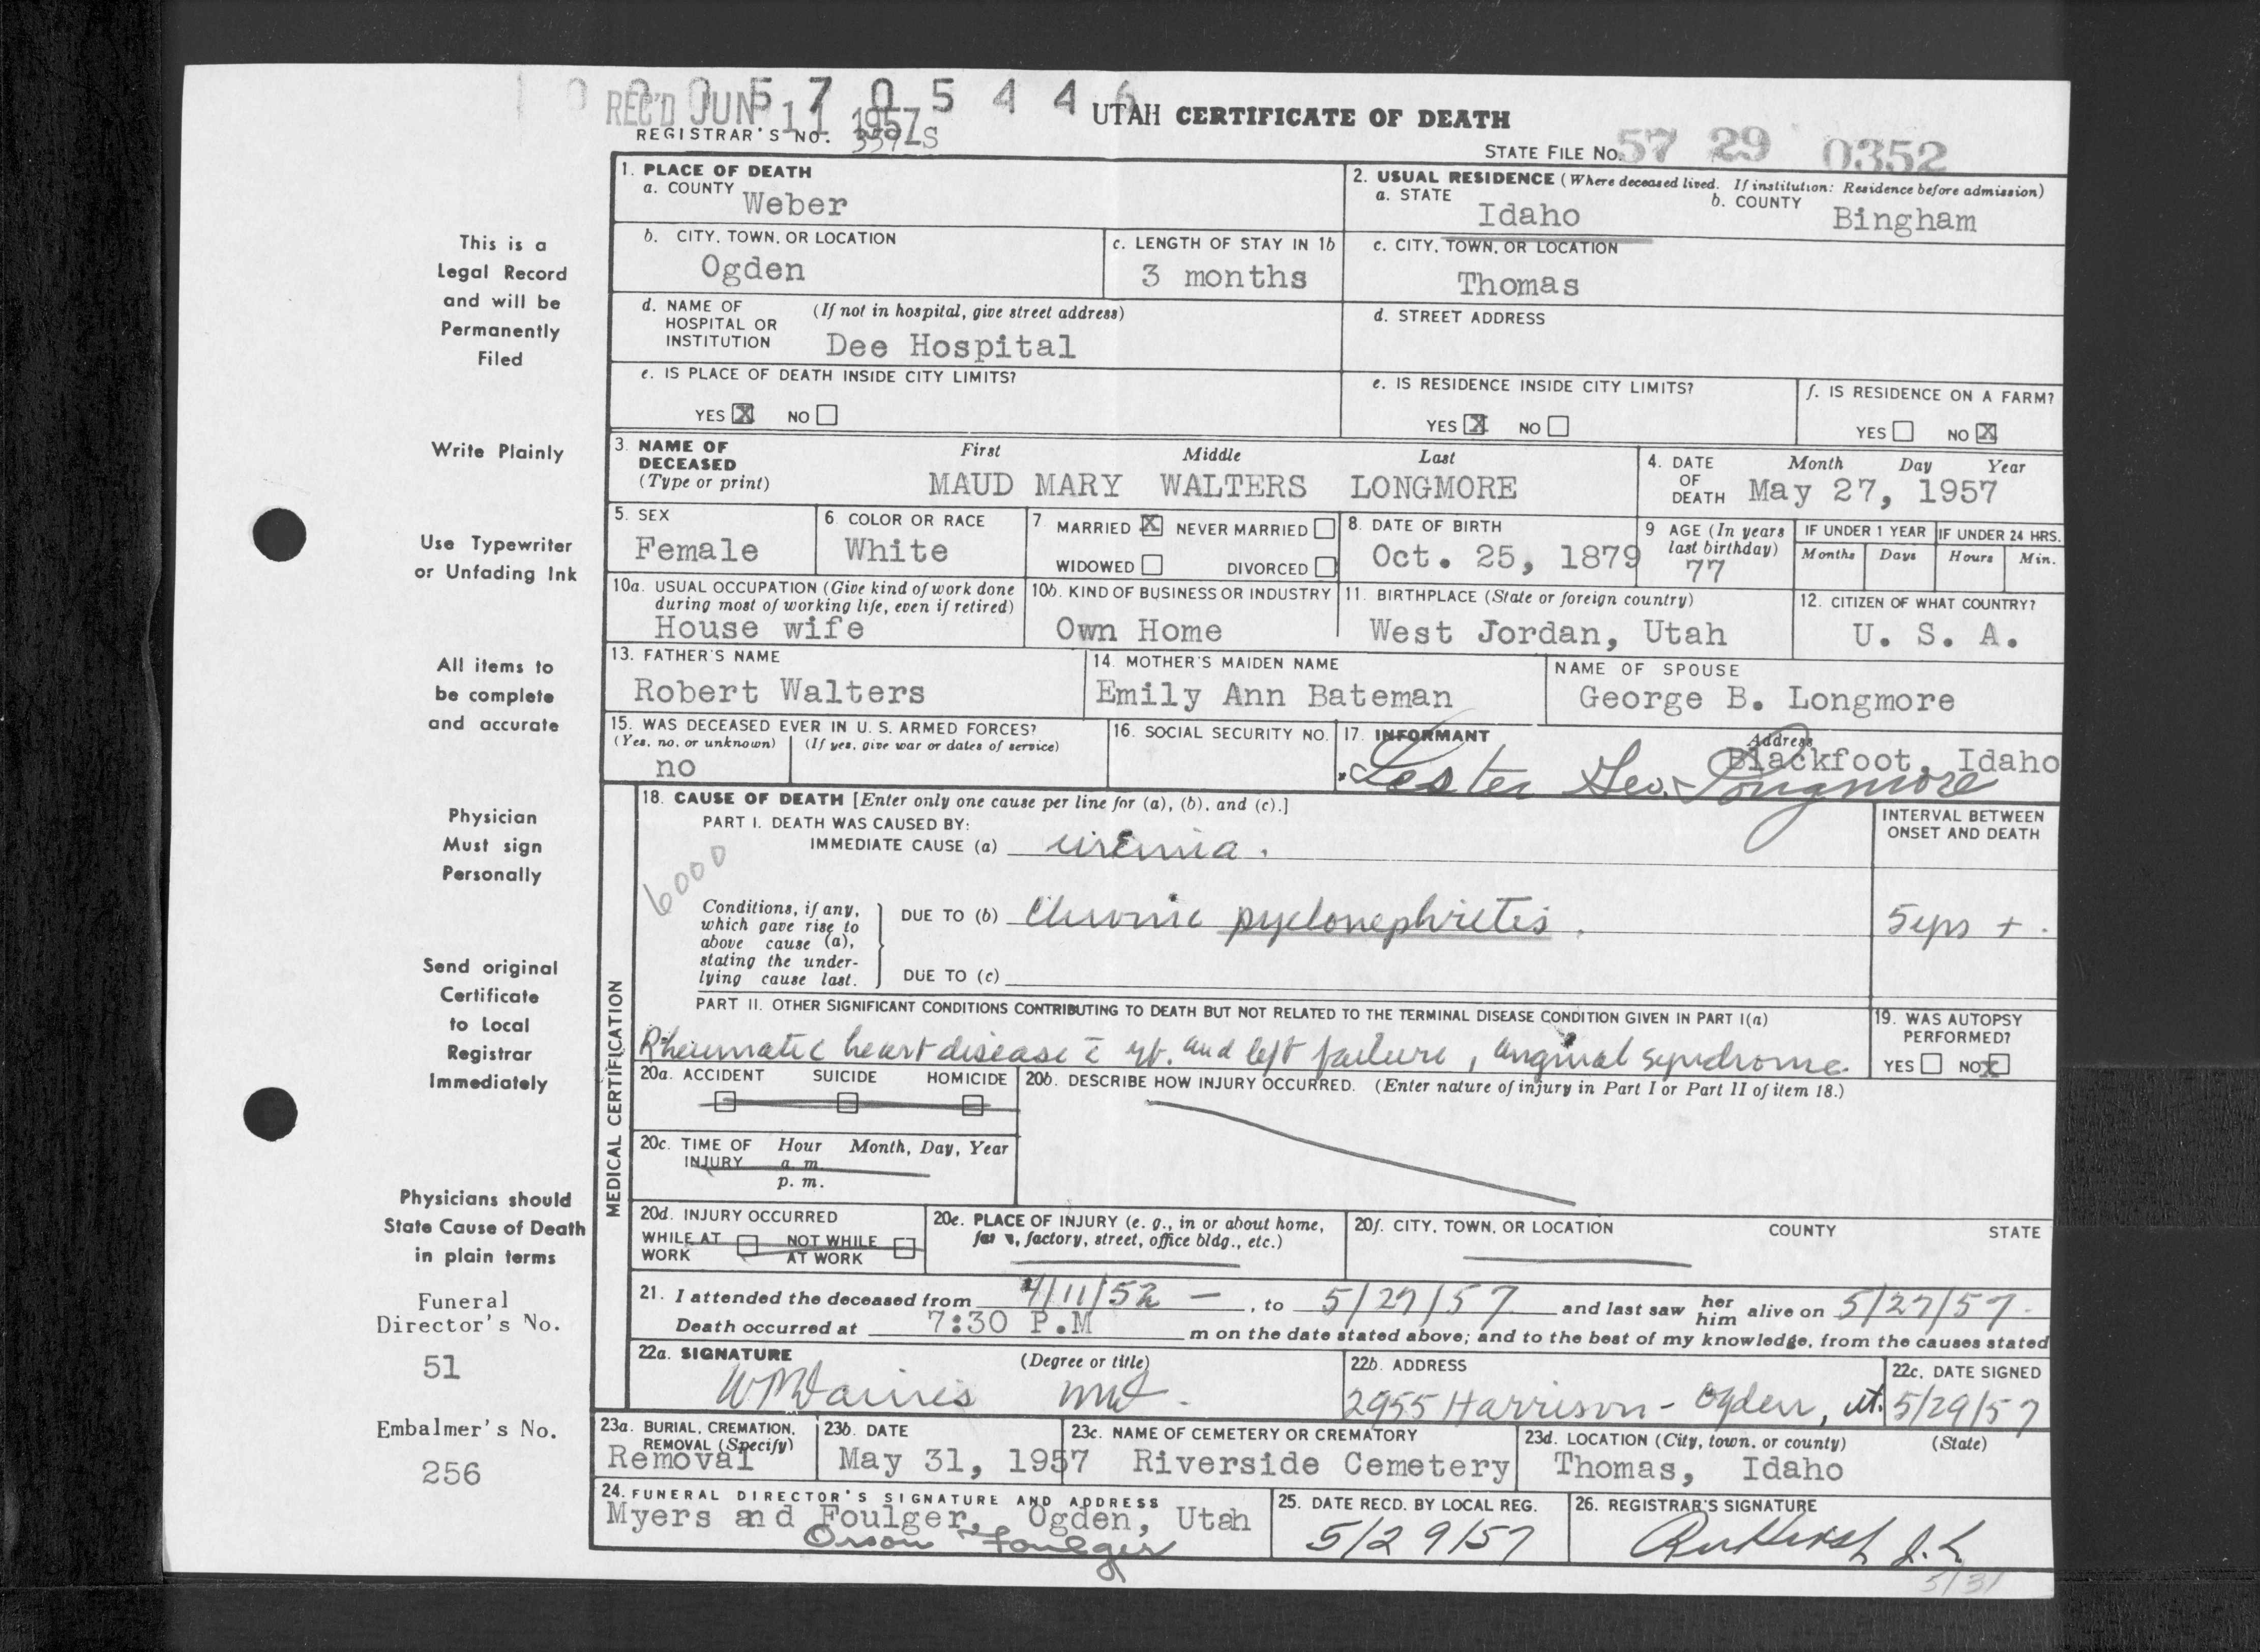 REC'D JUN 11 1957
5 7 0 5 4 4
UTAH CERTIFICATE OF DEATH
REGISTRAR'S NO.
STATE FILE NO. 57 29 0352
This is a
Legal Record
and will be
Permanently
Filed
Write Plainly
Use Typewriter
or Unfading Ink
All items to
be complete
and accurate
Physician
Must sign
Personally
Send original
Certificate
to Local
Registrar
Immediately
Physicians should
State Cause of Death
in plain terms
Funeral
Director's No.
51
Embalmer's No.
256
1. PLACE OF DEATH
a. COUNTY Weber
2. USUAL RESIDENCE (Where deceased lived. If institution: Residence before admission)
a. STATE Idaho b. COUNTY Bingham
b. CITY, TOWN, OR LOCATION
Ogden
c. LENGTH OF STAY IN 1b
3 months
c. CITY, TOWN, OR LOCATION
Thomas
d. NAME OF (If not in hospital, give street address)
HOSPITAL OR
INSTITUTION Dee Hospital
d. STREET ADDRESS
e. IS PLACE OF DEATH INSIDE CITY LIMITS?
YES X NO
e. IS RESIDENCE INSIDE CITY LIMITS?
YES X NO
f. IS RESIDENCE ON A FARM?
YES NO X
3. NAME OF DECEASED First Middle Last
(Type or print) MAUD MARY WALTERS LONGMORE
4. DATE OF DEATH Month Day Year
May 27, 1957
5. SEX
Female
6 COLOR OR RACE
White
7. MARRIED X NEVER MARRIED
WIDOWED DIVORCED
8. DATE OF BIRTH
Oct. 25, 1879
9 AGE (In years
last birthday)
77
IF UNDER 1 YEAR IF UNDER 24 HRS.
Months Days Hours Min.
10a. USUAL OCCUPATION (Give kind of work done
during most of working life, even if retired)
House wife
10b. KIND OF BUSINESS OR INDUSTRY
Own Home
11. BIRTHPLACE (State or foreign country)
West Jordan, Utah
12. CITIZEN OF WHAT COUNTRY?
U. S. A.
13. FATHER'S NAME
Robert Walters
14. MOTHER'S MAIDEN NAME
Emily Ann Bateman
NAME OF SPOUSE
George B. Longmore
15. WAS DECEASED EVER IN U. S. ARMED FORCES?
(Yes, no, or unknown) (If yes, give war or dates of service)
no
16. SOCIAL SECURITY NO.
17. INFORMANT Address
Blackfoot, Idaho
Lester Geo. Longmore
MEDICAL CERTIFICATION
18. CAUSE OF DEATH [Enter only one cause per line for (a), (b), and (c).]
PART I. DEATH WAS CAUSED BY:
IMMEDIATE CAUSE (a) uremia.
INTERVAL BETWEEN
ONSET AND DEATH
6000
Conditions, if any,
which gave rise to
above cause (a),
stating the under-
lying cause last.
DUE TO (b) Chronic pyelonephritis.
5 yrs +.
DUE TO (c)
PART II. OTHER SIGNIFICANT CONDITIONS CONTRIBUTING TO DEATH BUT NOT RELATED TO THE TERMINAL DISEASE CONDITION GIVEN IN PART I(a)
Rheumatic heart disease c̄ rt. and left failure, anginal syndrome.
19. WAS AUTOPSY
PERFORMED?
YES NO X
20a. ACCIDENT SUICIDE HOMICIDE
20b. DESCRIBE HOW INJURY OCCURRED. (Enter nature of injury in Part I or Part II of item 18.)
20c. TIME OF INJURY Hour Month, Day, Year
a. m.
p. m.
20d. INJURY OCCURRED
WHILE AT WORK NOT WHILE AT WORK
20e. PLACE OF INJURY (e. g., in or about home,
farm, factory, street, office bldg., etc.)
20f. CITY, TOWN, OR LOCATION COUNTY STATE
21. I attended the deceased from 4/11/52 — , to 5/27/57 and last saw her him alive on 5/27/57.
Death occurred at 7:30 P.M m on the date stated above; and to the best of my knowledge, from the causes stated
22a. SIGNATURE (Degree or title)
W M Daines MD.
22b. ADDRESS
2955 Harrison - Ogden, Ut.
22c. DATE SIGNED
5/29/57
23a. BURIAL, CREMATION,
REMOVAL (Specify)
Removal
23b. DATE
May 31, 1957
23c. NAME OF CEMETERY OR CREMATORY
Riverside Cemetery
23d. LOCATION (City, town, or county) (State)
Thomas, Idaho
24. FUNERAL DIRECTOR'S SIGNATURE AND ADDRESS
Myers and Foulger, Ogden, Utah
Orson Foulger
25. DATE RECD. BY LOCAL REG.
5/29/57
26. REGISTRAR'S SIGNATURE
5/31